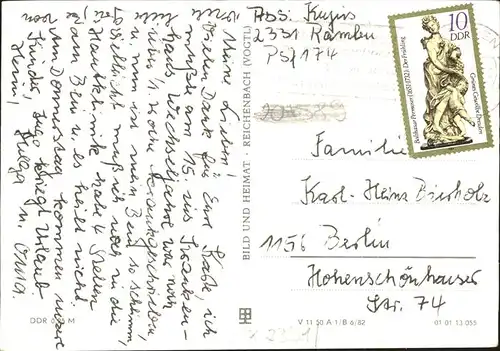 Meine Lieben!
Vielen Dank für Eure Karte, ich
mußte am 15. ins Kranken-
haus
u. nun ist mein Bein so schlimm,
vielleicht muß ich noch in die
Hautklinik habe 4 Stellen
am Bein u. es heilt nicht.
Am Donnerstag kommen unsere
Kinder, Ingo kriegt Urlaub
Helga u. Oma.
Abs: Kujus
2331 Rambin
Psf 174
10
DDR
Balthasar Permoser (1651-1732) · Der Frühling
Grünes Gewölbe Dresden
Familie
Karl-Heinz Buchholz
1156 Berlin
Hohenschönhauser
Str. 74
BILD UND HEIMAT · REICHENBACH (VOGTL)
V 11 50 A 1/B 6/82
01 01 13 055